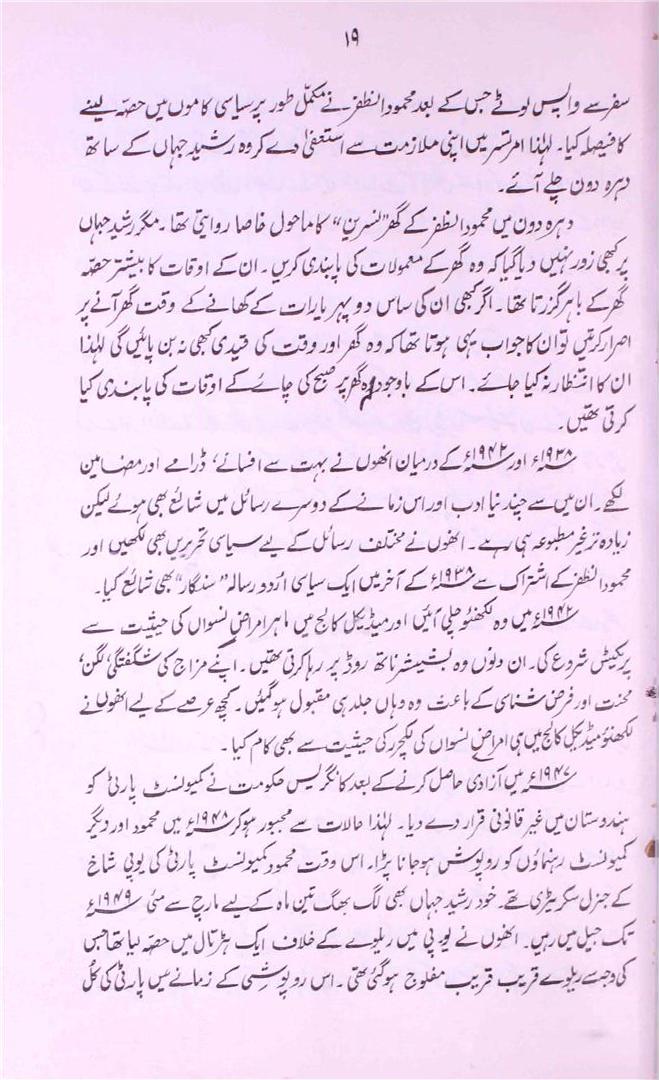 ۱۹
سفر سے واپس لوٹے جس کے بعد محمود الظفر نے مکمل طور پر سیاسی کاموں میں حصّہ لینے
کا فیصلہ کیا۔ لہٰذا امرتسر میں اپنی ملازمت سے استعفیٰ دے کر وہ رشید جہاں کے ساتھ
دہرہ دون چلے آئے۔
دہرہ دون میں محمود الظفر کے گھر ”نسرین“ کا ماحول خاصا روایتی تھا۔ مگر رشید جہاں
پر کبھی زور نہیں دیا گیا کہ وہ گھر کے معمولات کی پابندی کریں۔ ان کے اوقات کا بیشتر حصّہ
گھر کے باہر گزرتا تھا۔ اگر کبھی ان کی ساس دوپہر یا رات کے کھانے کے وقت گھر آنے پر
اصرار کرتیں تو ان کا جواب یہی ہوتا تھا کہ وہ گھر اور وقت کی قیدی کبھی نہ بن پائیں گی لہٰذا
ان کا انتظار نہ کیا جائے۔ اس کے باوجود وہ گھر پر صبح کی چائے کے اوقات کی پابندی کیا
کرتی تھیں۔
۱۹۳۸ء اور ۱۹۴۲ء کے درمیان انھوں نے بہت سے افسانے، ڈرامے اور مضامین
لکھے۔ ان میں سے چند نیا ادب اور اس زمانے کے دوسرے رسائل میں شائع بھی ہوئے لیکن
زیادہ تر غیر مطبوعہ ہی رہے۔ انھوں نے مختلف رسائل کے لیے سیاسی تحریریں بھی لکھیں اور
محمود الظفر کے اشتراک سے ۱۹۳۸ء کے آخر میں ایک سیاسی اُردو رسالہ ”سنگار“ بھی شائع کیا۔
۱۹۴۲ء میں وہ لکھنؤ چلی آئیں اور میڈیکل کالج میں ماہر امراضِ نسواں کی حیثیت سے
پریکٹس شروع کی۔ ان دنوں وہ بشیشر ناتھ روڈ پر رہا کرتی تھیں۔ اپنے مزاج کی شگفتگی، لگن،
محنت اور فرض شناسی کے باعث وہ وہاں جلد ہی مقبول ہو گئیں۔ کچھ عرصے کے لیے انھوں نے
لکھنؤ میڈیکل کالج میں ہی امراضِ نسواں کی لکچرر کی حیثیت سے بھی کام کیا۔
۱۹۴۷ء میں آزادی حاصل کرنے کے بعد کانگریس حکومت نے کمیونسٹ پارٹی کو
ہندوستان میں غیر قانونی قرار دے دیا۔ لہٰذا حالات سے مجبور ہو کر ۱۹۴۸ء میں محمود اور دیگر
کمیونسٹ رہنماؤں کو روپوش ہو جانا پڑا۔ اس وقت محمود کمیونسٹ پارٹی کی یوپی شاخ
کے جنرل سکریٹری تھے۔ خود رشید جہاں بھی لگ بھگ تین ماہ کے لیے مارچ سے مئی ۱۹۴۹ء
تک جیل میں رہیں۔ انھوں نے یوپی میں ریلوے کے خلاف ایک ہڑتال میں حصّہ لیا تھا جس
کی وجہ سے ریلوے قریب قریب مفلوج ہو گئی تھی۔ اس روپوشی کے زمانے میں پارٹی کی کُل